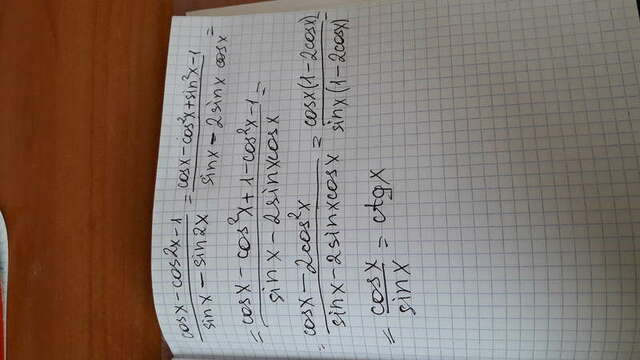 (cosx - cos2x - 1)/(sinx - sin2x) = (cosx - cos²x + sin²x - 1)/(sinx - 2sinx cosx) =
= (cosx - cos²x + 1 - cos²x - 1)/(sinx - 2sinxcosx) =
= (cosx - 2cos²x)/(sinx - 2sinxcosx) = (cosx(1 - 2cosx))/(sinx(1 - 2cosx)) =
= cosx/sinx = ctgx